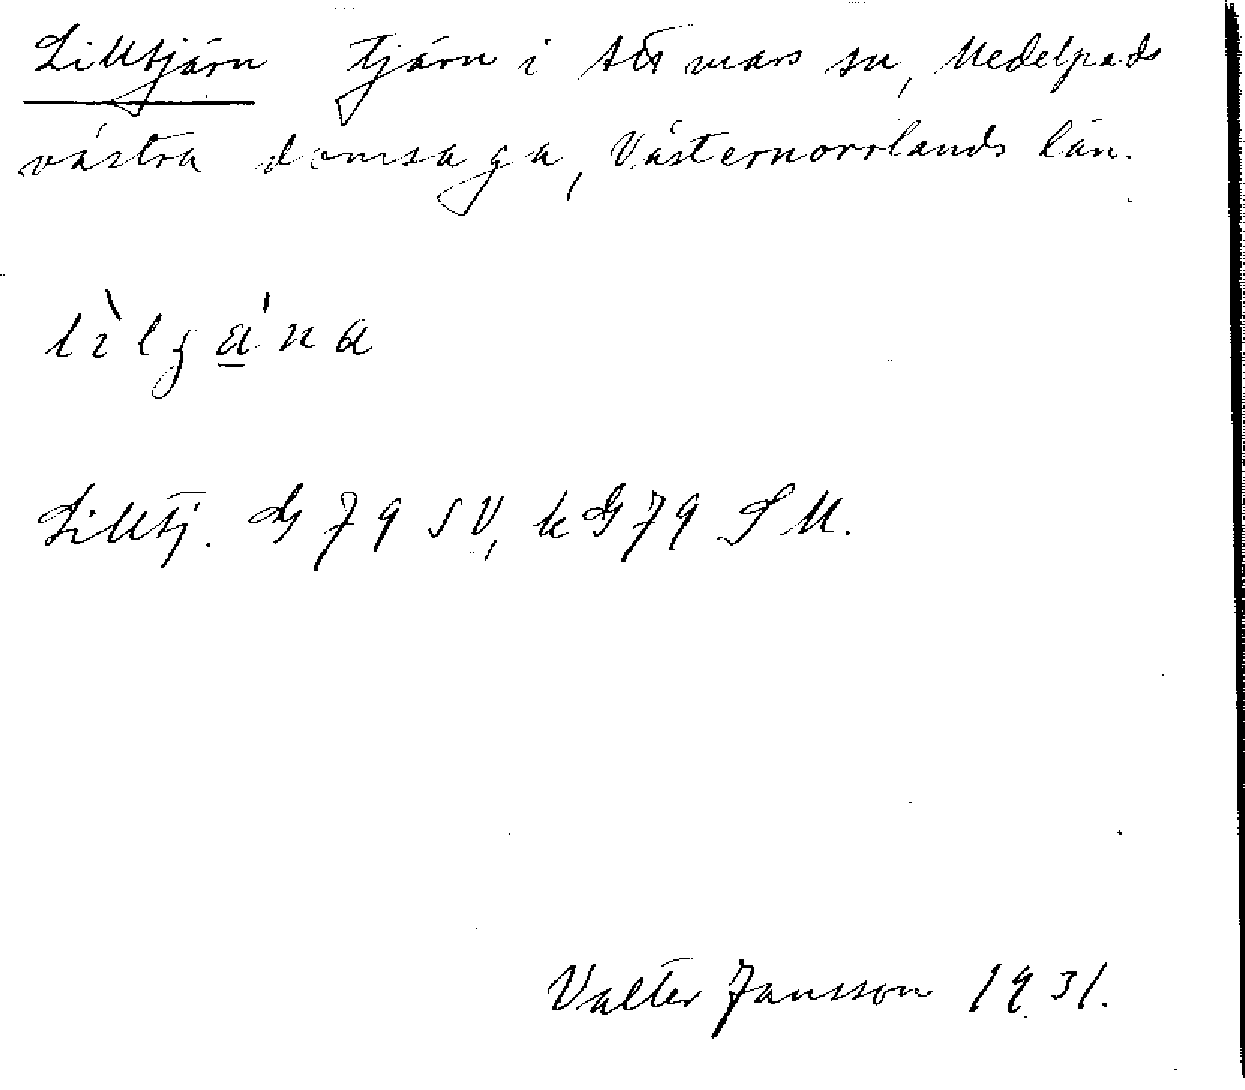 Lilltjärn tjärn i Attmars sn, Medelpads
västra domsaga, Västernorrlands län.
Lilltj. G 79 SV, kG79 SM.
Valter Jansson 1931.